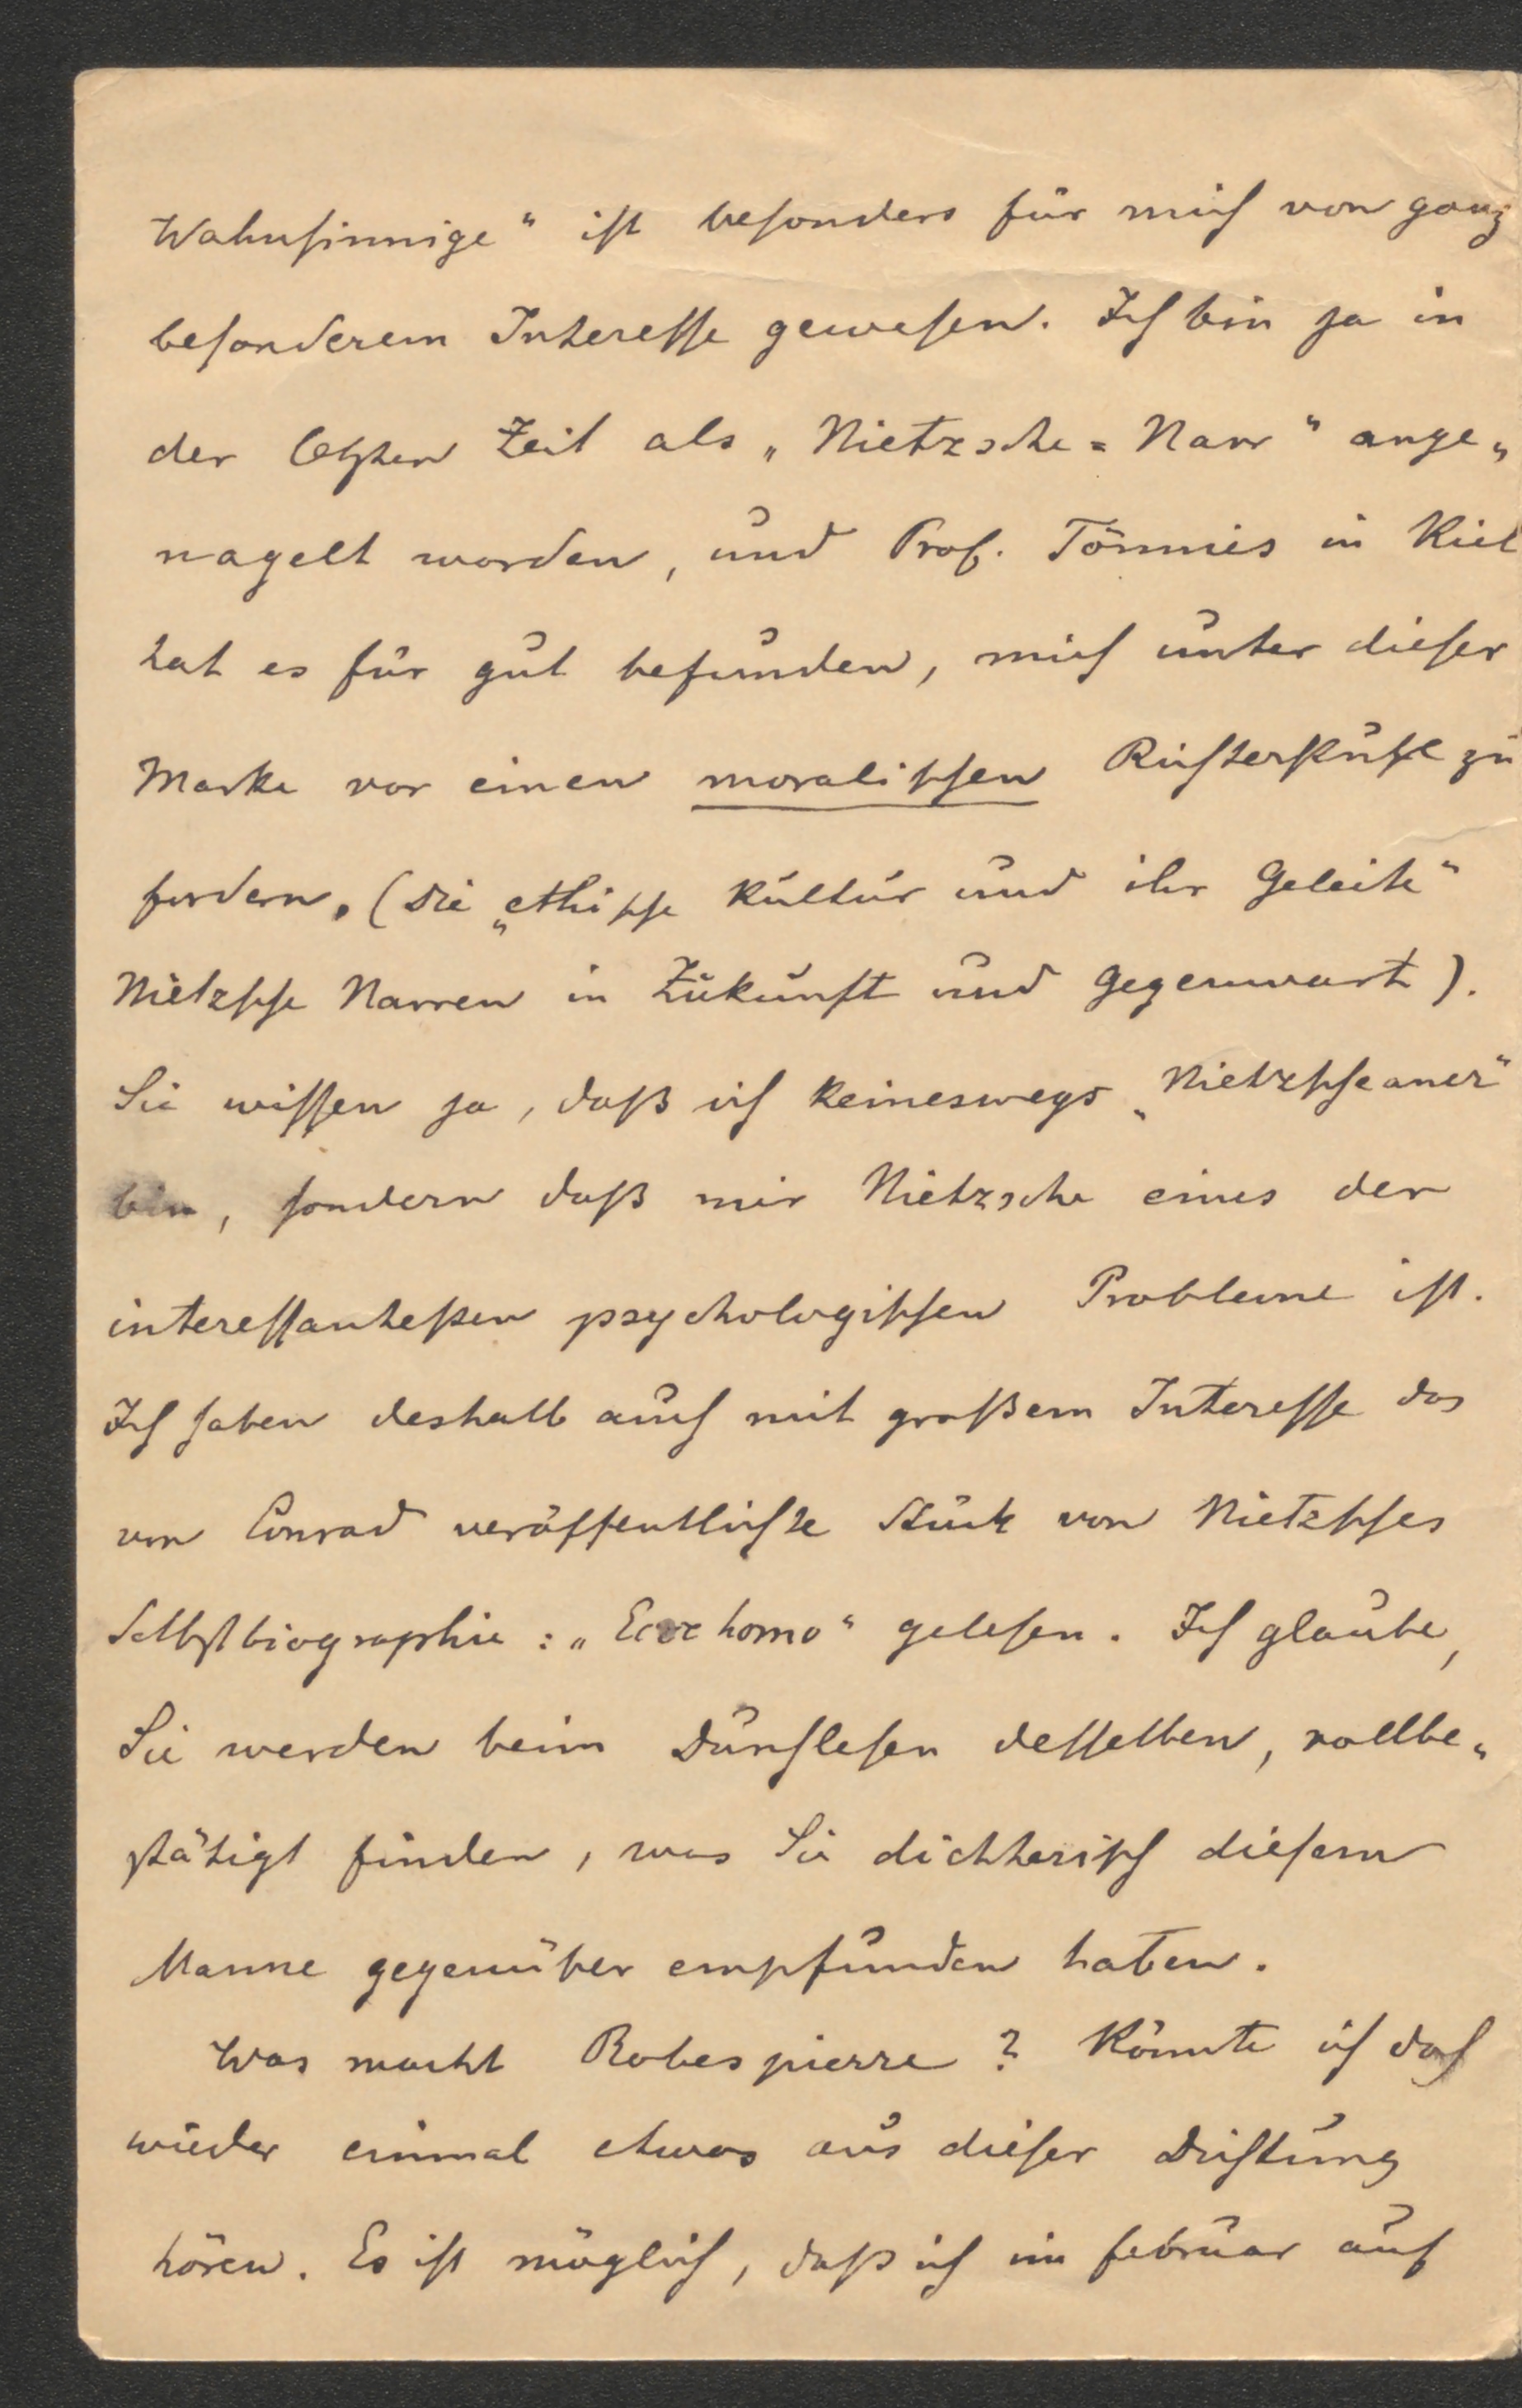 Wahnsinnige“ ist besonders für mich von ganz
besonderem Interesse gewesen. Ich bin ja in
der letzten Zeit als „Nietzsche=Narr“ ange„
nagelt worden, und Prof. Tönnies in Kiel
hat es für gut befunden, mich unter dieser
Marke vor einen moralischen Richterstuhl zu
fordern. (Die „ethische Kultur und ihr Geleite“
Nietzsche Narren in Zukunft und Gegenwart).
Sie wissen ja, daß ich keineswegs „Nietzscheaner“
bin, sondern daß mir Nietzsche eines der
interessantesten psychologischen Probleme ist.
Ich haben deshalb auch mit großem Interesse das
von Conrad veröffentlichte Stück von Nietzsches
Selbstbiographie: „Ecce homo“ gelesen. Ich glaube,
Sie werden beim Durchlesen desselben, vollbe„
stätigt finden, was Sie dichterisch diesem
Manne gegenüber empfunden haben.
Was macht Robespierre? Könnte ich doch
wieder einmal etwas aus dieser Dichtung
hören. Es ist möglich, daß ich im Februar auf